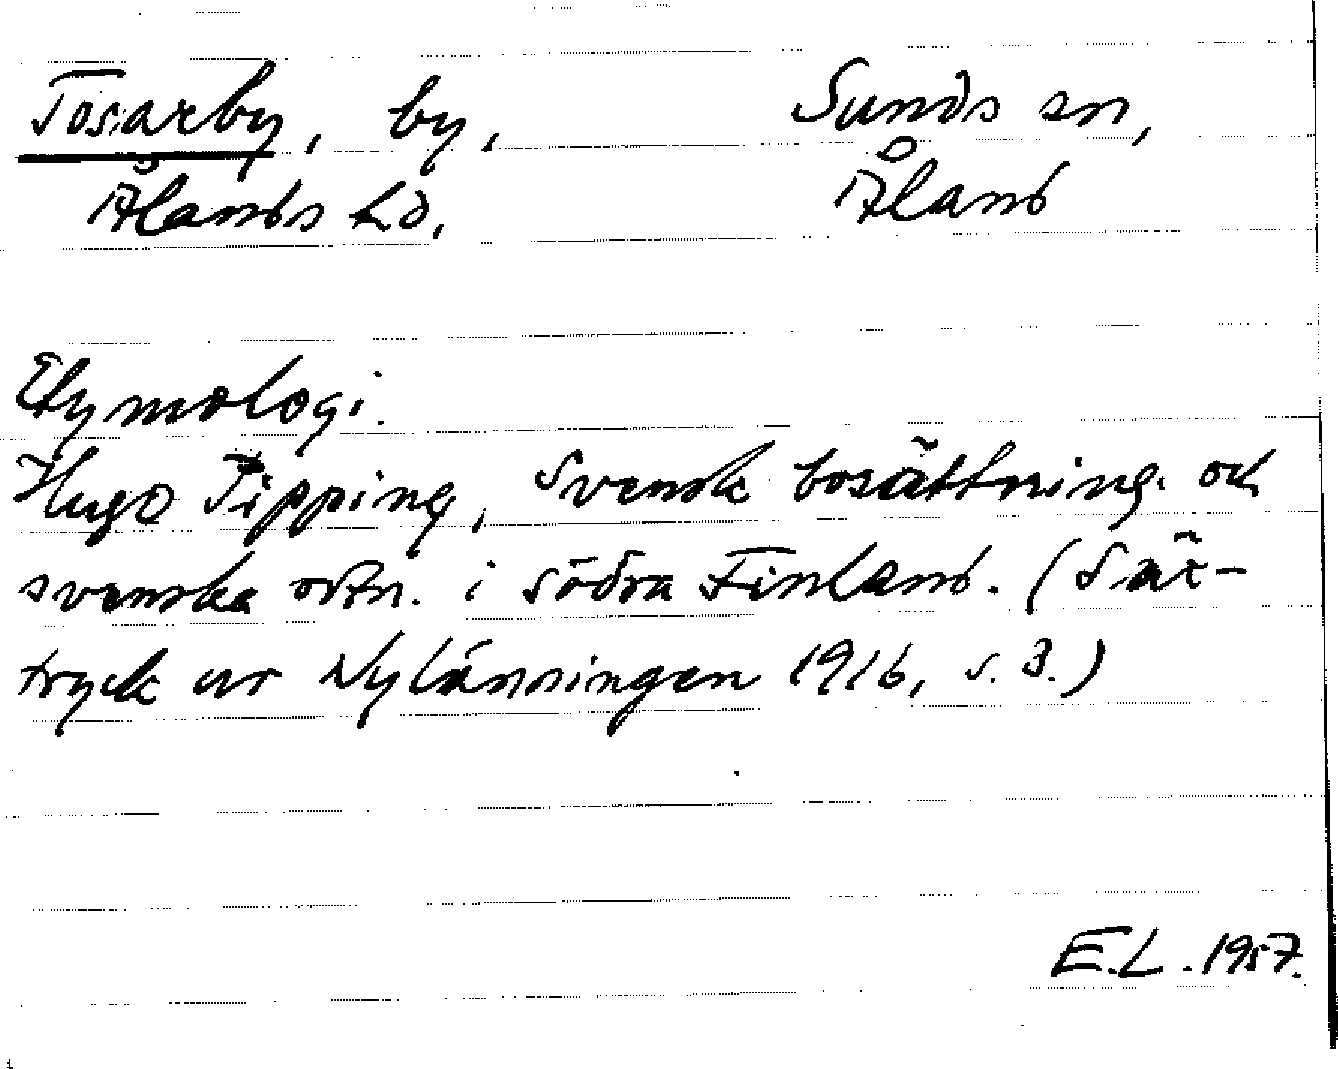 Tosarby, by, Sunds sn,
Ålands hd. Åland
Etymologi.
Hugo Pipping, Svensk bosättning och
svenska ortn. i södra Finland. (Sär-
tryck ur Nylänningen 1916, s. 3.)
E.L. 1957.